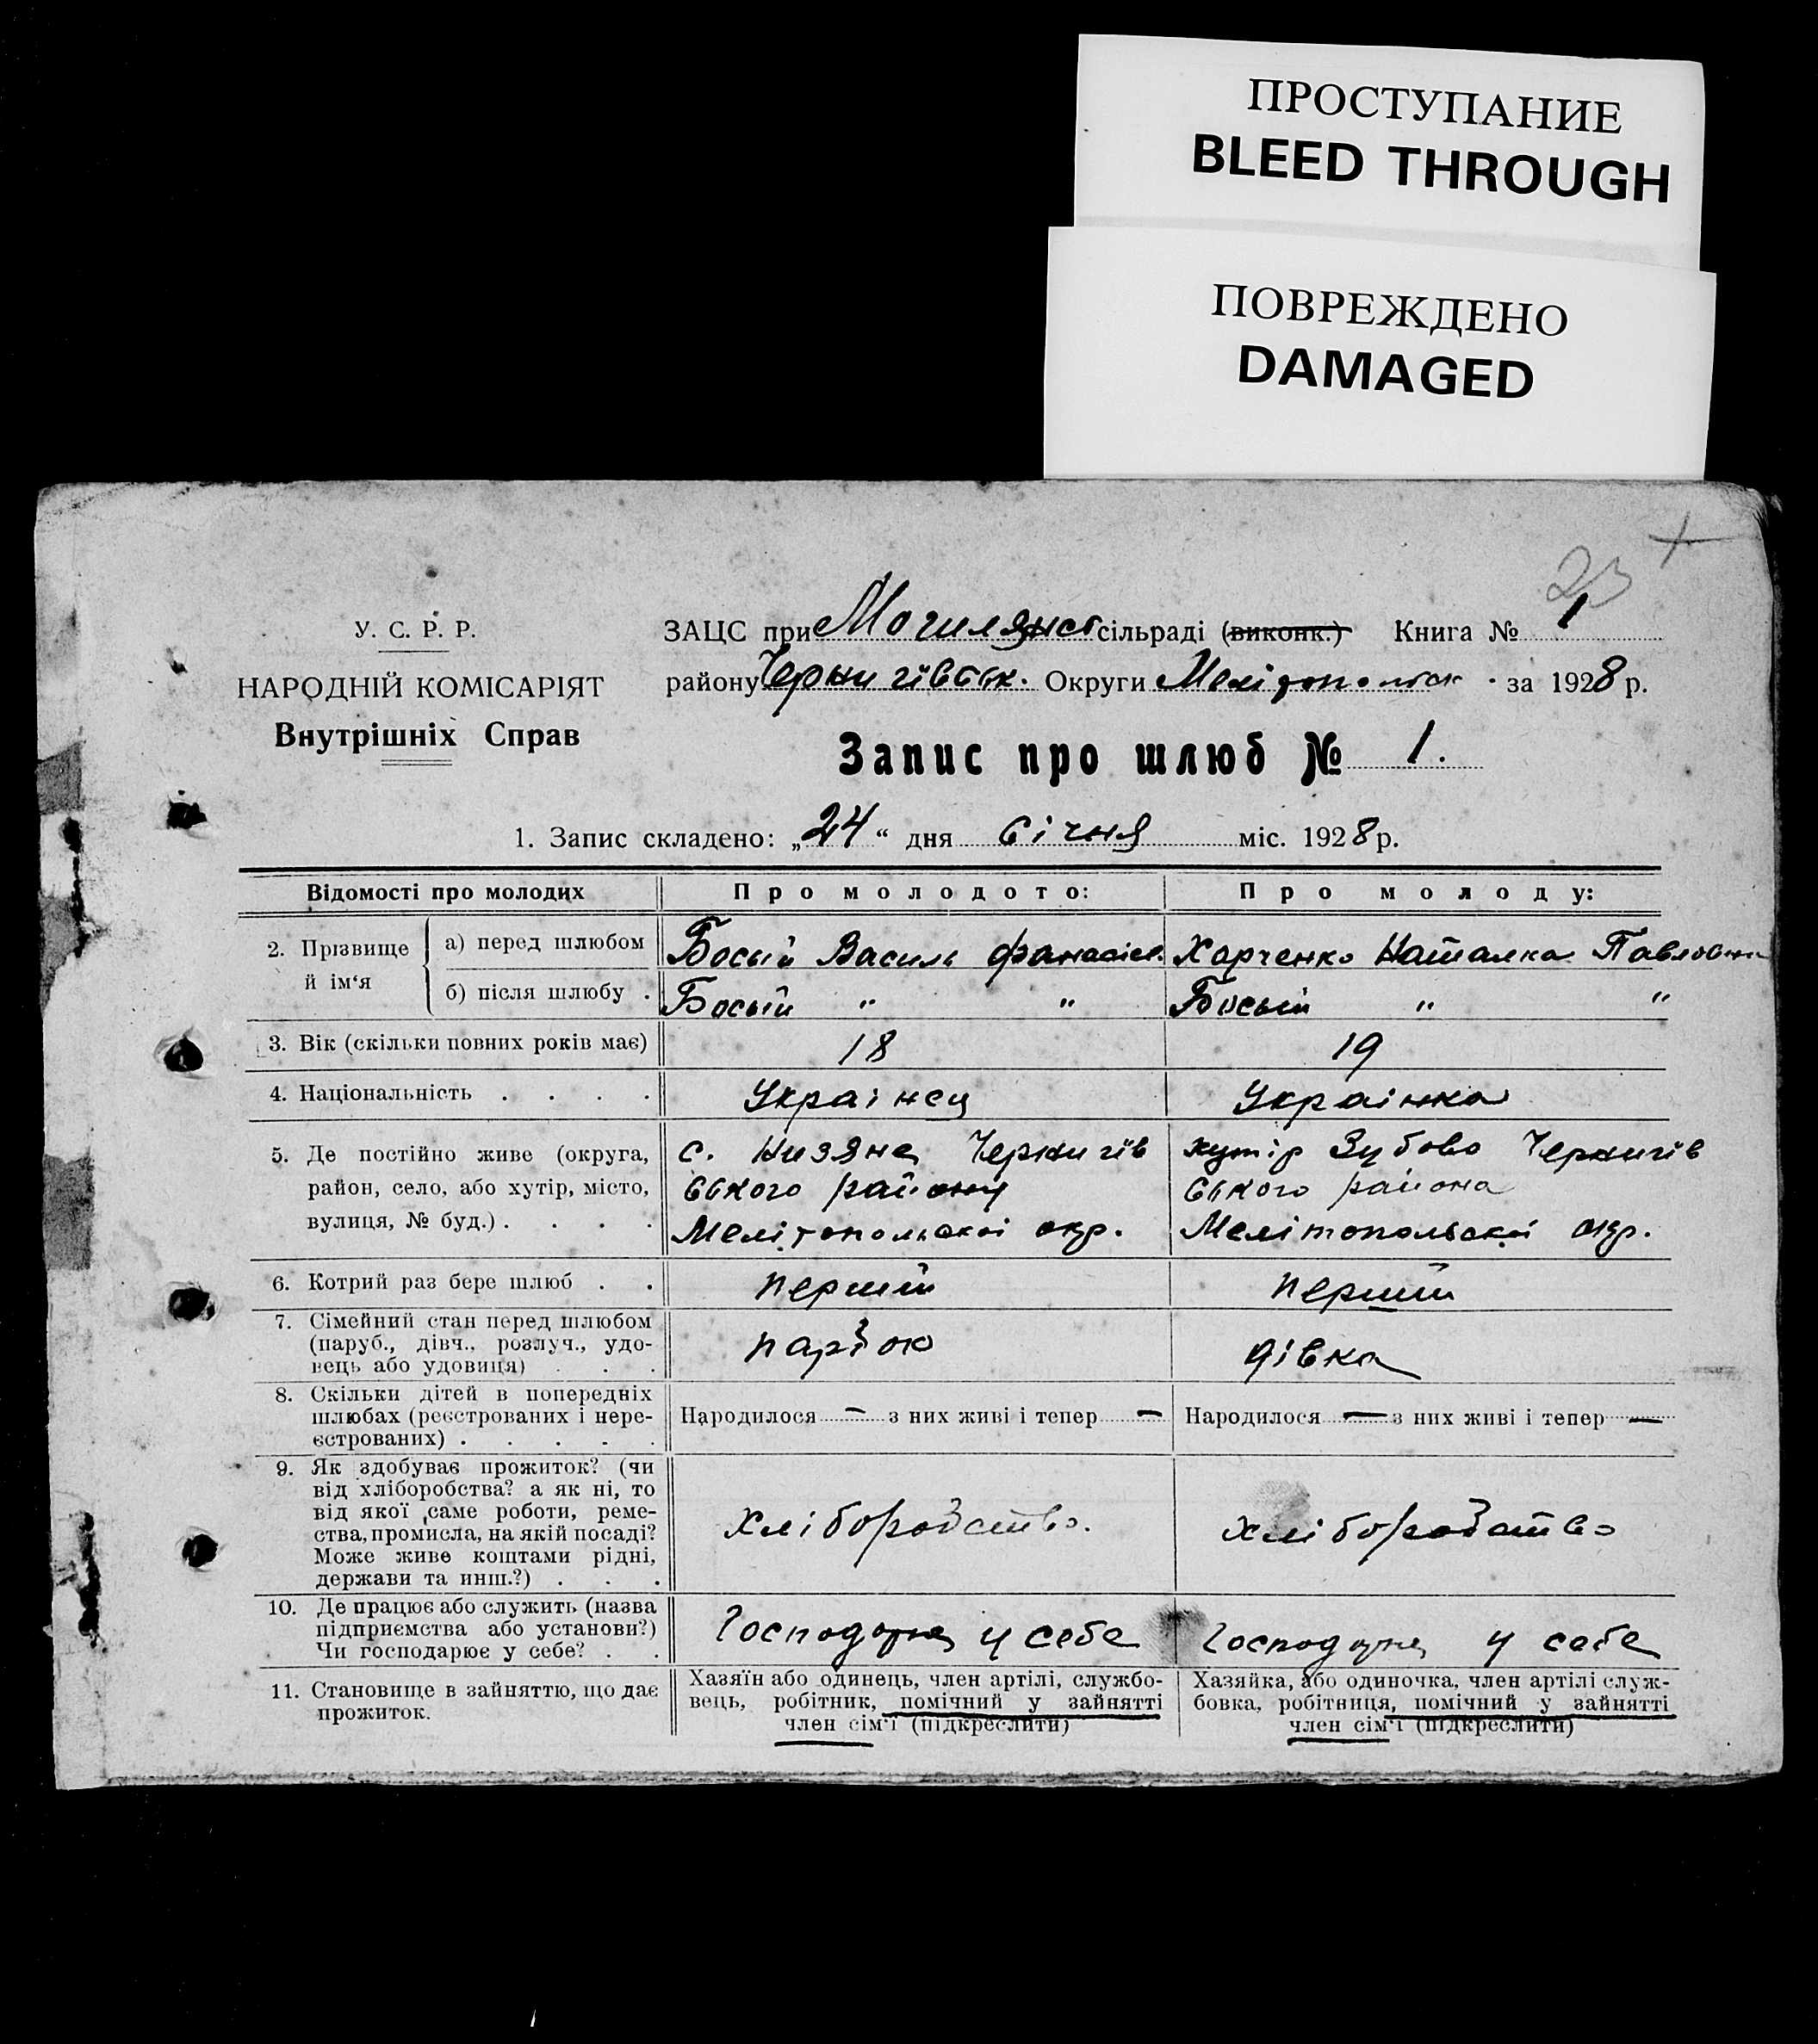 ПРОСТУПАНИЕ
BLEED THROUGH
ПОВРЕЖДЕНО
DAMAGED
23
У. С. Р. Р.
НАРОДНІЙ КОМІСАРІЯТ
Внутрішніх Справ
ЗАЦС при Могилянс сільраді (виконк.) Книга № 1
району Чернигівськ. Округи Мелітопольск. за 1928 р.
Запис про шлюб № 1.
1. Запис складено: „24“ дня січня міс. 1928 р.
Відомості про молодих
Про молодото:
Про молоду:
2. Прізвище й ім‘я
а) перед шлюбом
Босый Василь Фанасієв.
Харченко Наталка Павловна
б) після шлюбу .
Босый " "
Босый " "
3. Вік (скільки повних років має)
18
19
4. Національність . . . .
Українец
Українка
5. Де постійно живе (округа,
район, село, або хутір, місто,
вулиця, № буд.) . . . .
с. Низяне Чернигів
ського району
Мелітопольскоі окр.
хутір Зубово Чернигів
ського района
Мелітопольскоі окр.
6. Котрий раз бере шлюб . .
перший
перший
7. Сімейний стан перед шлюбом
(паруб., дівч., розлуч., удо-
вець або удовиця) . . .
дівка
8. Скільки дітей в попередніх
шлюбах (реєстрованих і нере-
єстрованих) . . . . .
Народилося — з них живі і тепер —
Народилося — з них живі і тепер —
9. Як здобуває прожиток? (чи
від хліборобства? а як ні, то
від якої саме роботи, реме-
ства, промисла, на якій посаді?
Може живе коштами рідні,
держави та инш.?) . . .
хліборобство.
хліборобство
10. Де працює або служить (назва
підприємства або установи?)
Чи господарює у себе? . .
Господарює у себе
Господарює у себе
11. Становище в зайняттю, що дає
прожиток.
Хазяїн або одинець, член артілі, службо-
вець, робітник, помічний у зайнятті
член сім‘ї (підкреслити)
Хазяйка, або одиночка, член артілі служ-
бовка, робітниця, помічний у зайнятті
член сім‘ї (підкреслити)